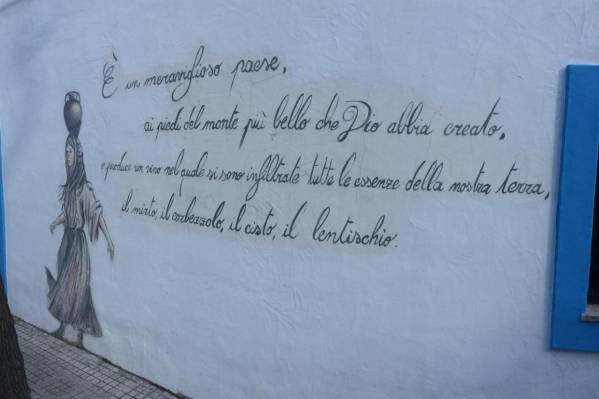 È un meraviglioso paese,
ai piedi del monte più bello che Dio abbia creato,
e produce un vino nel quale si sono infiltrate tutte le essenze della nostra terra,
il mirto, il corbezzolo, il cisto, il lentischio.